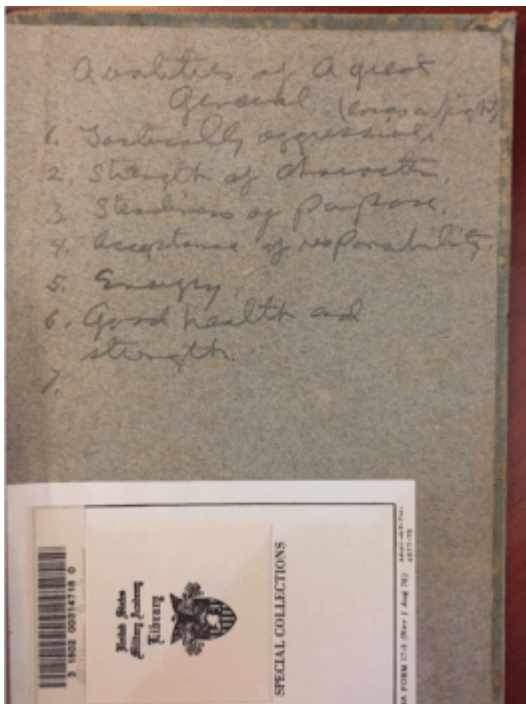 Qualities of a great
General. (loves a fight)
1. Tactically aggressive.
2. Strength of character.
3. Steadiness of purpose.
4. Acceptance of responsibility.
5. Energy.
6. Good health and
strength.
7.
United States
Military Academy
Library
SPECIAL COLLECTIONS
3 1602 00314718 0